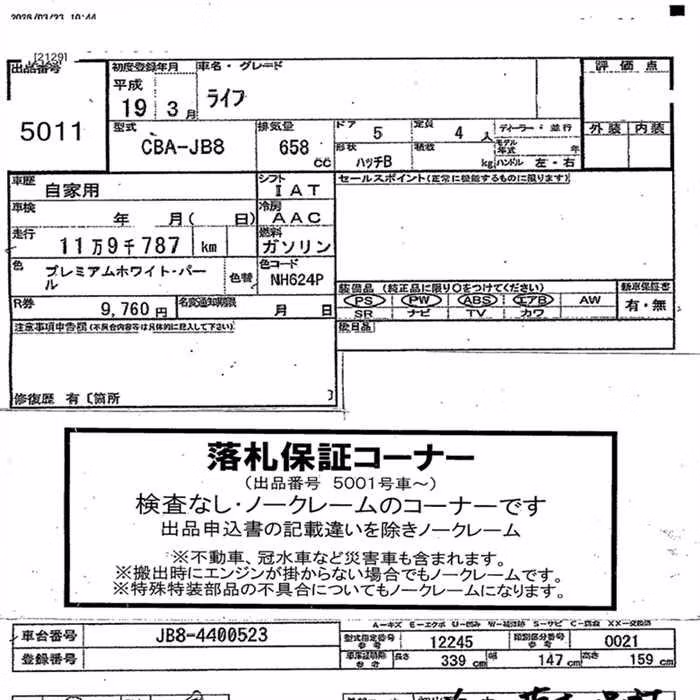 2026/03/23 10:44
[2129]
出品番号
5011
初度登録年月
平成
19 3月
車名・グレード
ライフ
評価点
外装 内装
型式
CBA-JB8
排気量
658 cc
ドア 5
定員 4 人
ディーラー・並行
形状 ハッチB
積載 kg
モデル年式 年
ハンドル 左・右
車歴 自家用
シフト IAT
セールスポイント(正常に機能するものに限ります)
車検 年 月( 日)
冷房 AAC
走行 11万9千787 km
燃料 ガソリン
色 プレミアムホワイト・パール
色替
色コード NH624P
装備品 (純正品に限り○をつけてください)
PS PW ABS エアB AW
SR ナビ TV カワ
新車保証書
有・無
R券 9,760円
名変通知期限 月 日
注意事項申告欄(不具合内容等は具体的に記入して下さい)
後日品
修復歴 有〔箇所 〕
落札保証コーナー
(出品番号 5001号車～)
検査なし・ノークレームのコーナーです
出品申込書の記載違いを除きノークレーム
※不動車、冠水車など災害車も含まれます。
※搬出時にエンジンが掛からない場合でもノークレームです。
※特殊特装部品の不具合についてもノークレームになります。
A-キズ E-エクボ U-凹み W-補修跡 S-サビ C-腐食 XX-交換済
車台番号 JB8-4400523
型式指定番号 参考 12245
類別区分番号 参考 0021
登録番号
車庫証明用 参考 長さ 339 cm 幅 147 cm 高さ 159 cm